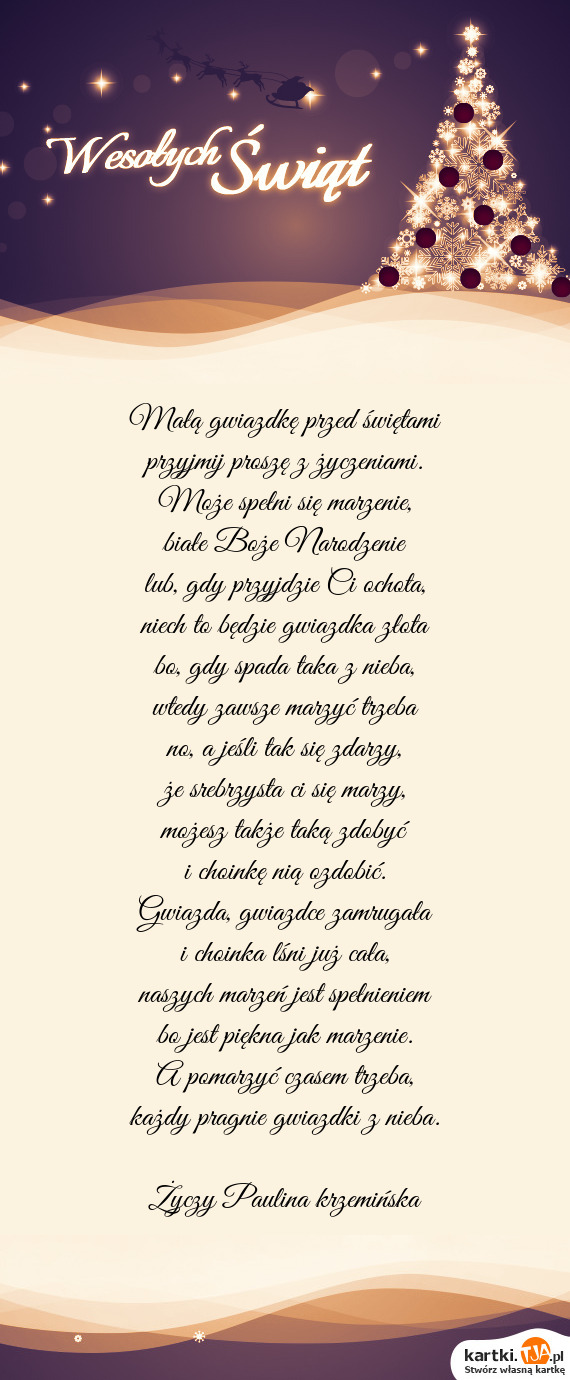 Wesołych Świąt
Małą gwiazdkę przed świętami
przyjmij proszę z życzeniami.
Może spełni się marzenie,
białe Boże Narodzenie
lub, gdy przyjdzie Ci ochota,
niech to będzie gwiazdka złota
bo, gdy spada taka z nieba,
wtedy zawsze marzyć trzeba
no, a jeśli tak się zdarzy,
że srebrzysta ci się marzy,
możesz także taką zdobyć
i choinkę nią ozdobić.
Gwiazda, gwiazdce zamrugała
i choinka lśni już cała,
naszych marzeń jest spełnieniem
bo jest piękna jak marzenie.
A pomarzyć czasem trzeba,
każdy pragnie gwiazdki z nieba.
Życzy Paulina krzemińska
kartki.TJA.pl
Stwórz własną kartkę